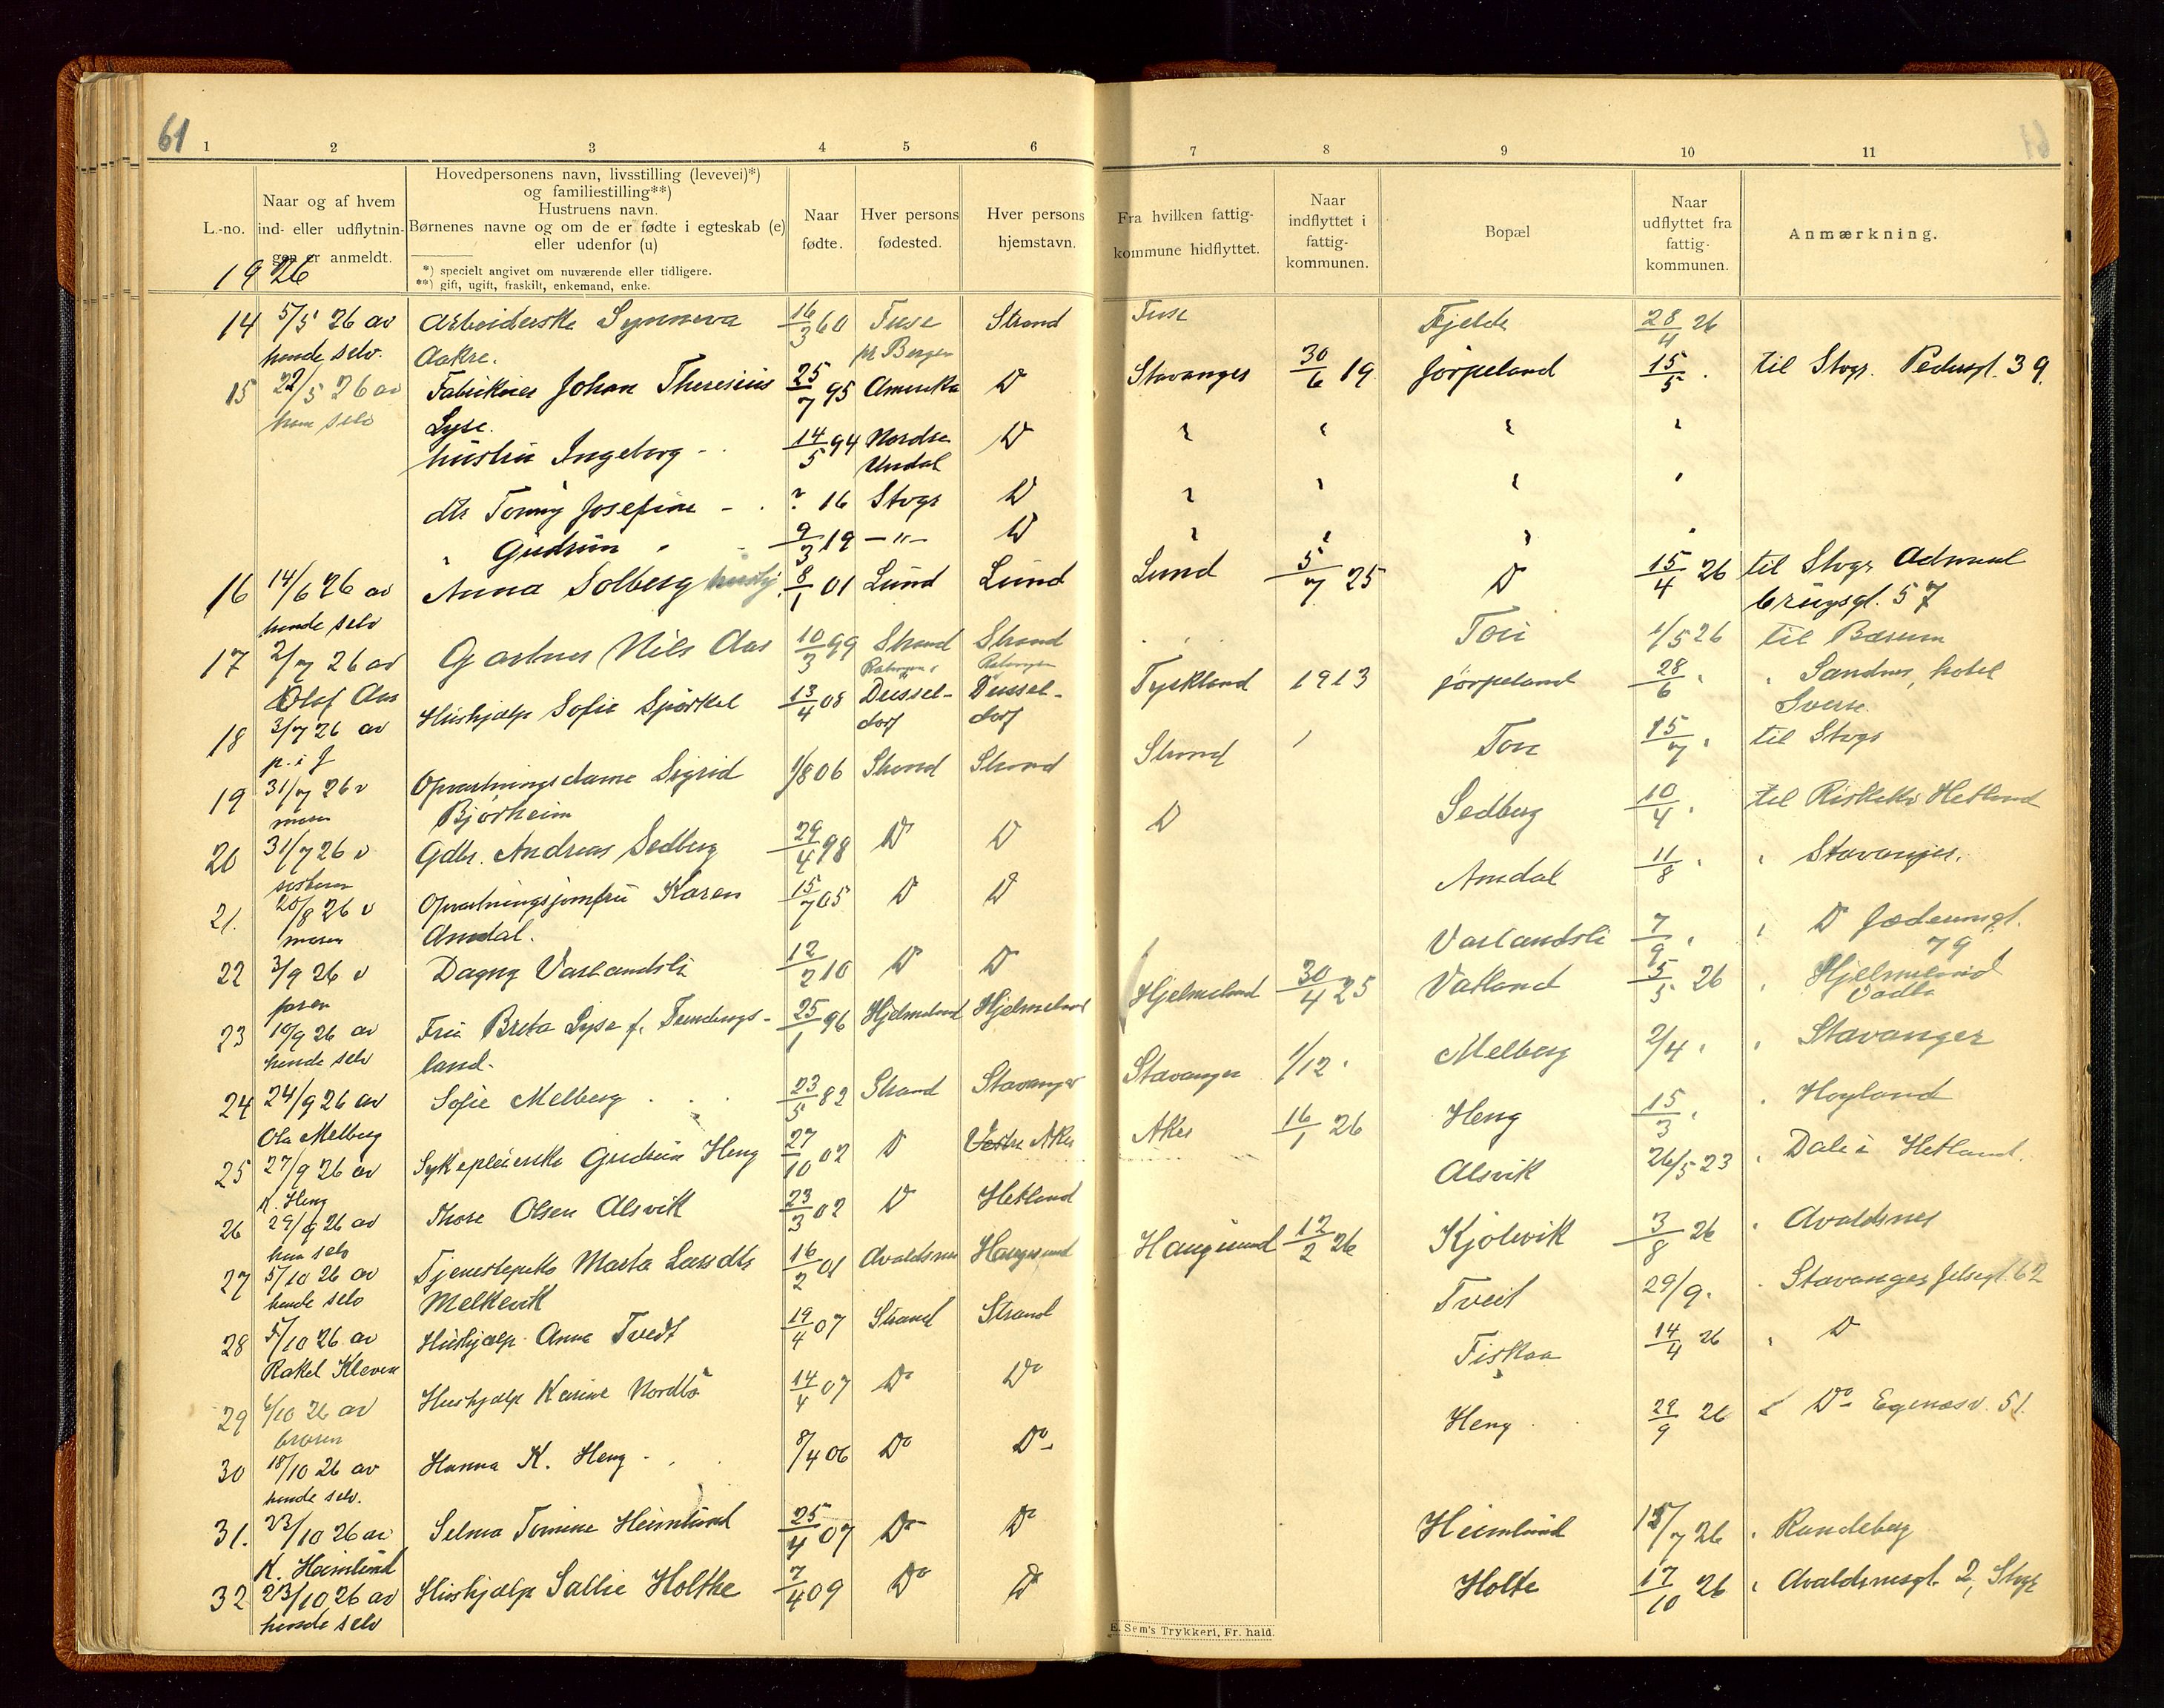 61
1 2 3 4 5 6 7 8 9 10 11
L.-no.
Naar og af hvem
ind- eller udflytnin-
gen er anmeldt.
Hovedpersonens navn, livsstilling (levevei)*)
og familiestilling**)
Hustruens navn.
Børnenes navne og om de er fødte i egteskab (e)
eller udenfor (u)
*) specielt angivet om nuværende eller tidligere.
**) gift, ugift, fraskilt, enkemand, enke.
Naar
fødte.
Hver persons
fødested.
Hver persons
hjemstavn.
Fra hvilken fattig-
kommune hidflyttet.
Naar
indflyttet i
fattig-
kommunen.
Bopæl
Naar
udflyttet fra
fattig-
kommunen.
Anmærkning.
1926
14 5/5 26 av Arbeiderske Synneva 16/3 60 Fuse Strand Fuse Fjelde 28/4 26
hende selv. Aakre. pr Bergen
15 22/5 26 av Fabrikeier Johan Theresius 25/7 95 Amerika D Stavanger 30/6 19 Jørpeland 15/5 . til Stvgr. Pedersgt. 39.
ham selv Lyse.
hustru Ingeborg - 14/5 94 Nordre D
Undal
dtr Tonny Josefine - . ? 16 Stvgr D
" Gudrun " - 9/3 19 -"- D
16 14/6 26 av Anna Solberg hushj. 8/1 01 Lund Lund Lund 5/7 25 D 15/4 26 til Stvgr Admiral
hende selv Cruysgt. 57
17 2/7 26 av Gartner Nils Aas 10/3 99 Strand Strand Tou 1/5 26 til Bærum
Olaf Aas
18 3/7 26 av Hushjælp Sofie Spørkel 13/4 08 Dussel- Dussel- Tyskland 1913 Jørpeland 28/6 " " Sandnes, hotel
p. i f dorf dorf Sverre
19 31/7 26 v Opvartningsdame Sigrid 1/8 06 Strand Strand Strand Tou 15/7 " til Stvgr
moren Bjørheim
20 31/7 26 v Gdbr. Andreas Sedberg 29/4 98 D D D Sedberg 10/4 " til Riskekv Hetland
søsteren
21. 20/8 26 v Opvartningsjomfru Karen 15/7 05 D D Amdal 11/8 " " Stavanger.
moren Amdal.
22 3/9 26 v Dagny Vaslandsli 12/2 10 D D Vaslandsli 7/9 " " D Jæderensgt.
faren 79
23 10/9 26 av Fru Breta Lyse f. Tunlangs- 25/1 96 Hjelmeland Hjelmeland Hjelmeland 30/4 25 Vatland 5/5 26 " Hjelmeland
hende selv land. Vadla
24 24/9 26 av Sofie Melberg 23/5 82 Strand Stavanger Stavanger 1/12 " Melberg 2/4 " " Stavanger
Ola Melberg
25 27/9 26 av Sykepleierske Gudrun Heng 27/10 02 D Vestre Aker Aker 16/1 26 Heng 15/3 " " Høyland
K. Heng
26 29/9 26 av Thore Olsen Alsvik 23/3 02 D Hetland Alsvik 26/5 23 " Dale i Hetland.
ham selv
27 5/10 26 av Tjenestepike Marta Larsdtr 16/2 01 Avaldsnes Haugesund Haugesund 12/2 26 Kjølevik 3/8 26 " Avaldsnes
hende selv Melkevik
28 5/10 26 av Hushjælp Anna Tvedt 19/4 07 Strand Strand Tveit 29/9. " Stavanger Jelsegt. 62
Rakel Kleven
29 6/10 26 av Hushjælp Karine Nordbø 14/4 07 Do Do Fiskaa 14/4 26 " D
broren
30 18/10 26 av Hanna K. Heng 8/4 06 Do Do Heng 29/9 26 " Do Egenæsv. 51.
hende selv.
31. 23/10 26 av Selma Tomine Heimlund 25/4 07 Do Do Heimlund 15/7 26 " Randeberg
K. Heimlund
32 23/10 26 av Hushjælp Sallie Holthe 7/4 09 Do D Holte 17/10 26 " Avaldsnesgt. 2, Stvgr
hende selv
E. Sem's Trykkeri, Fr. hald.